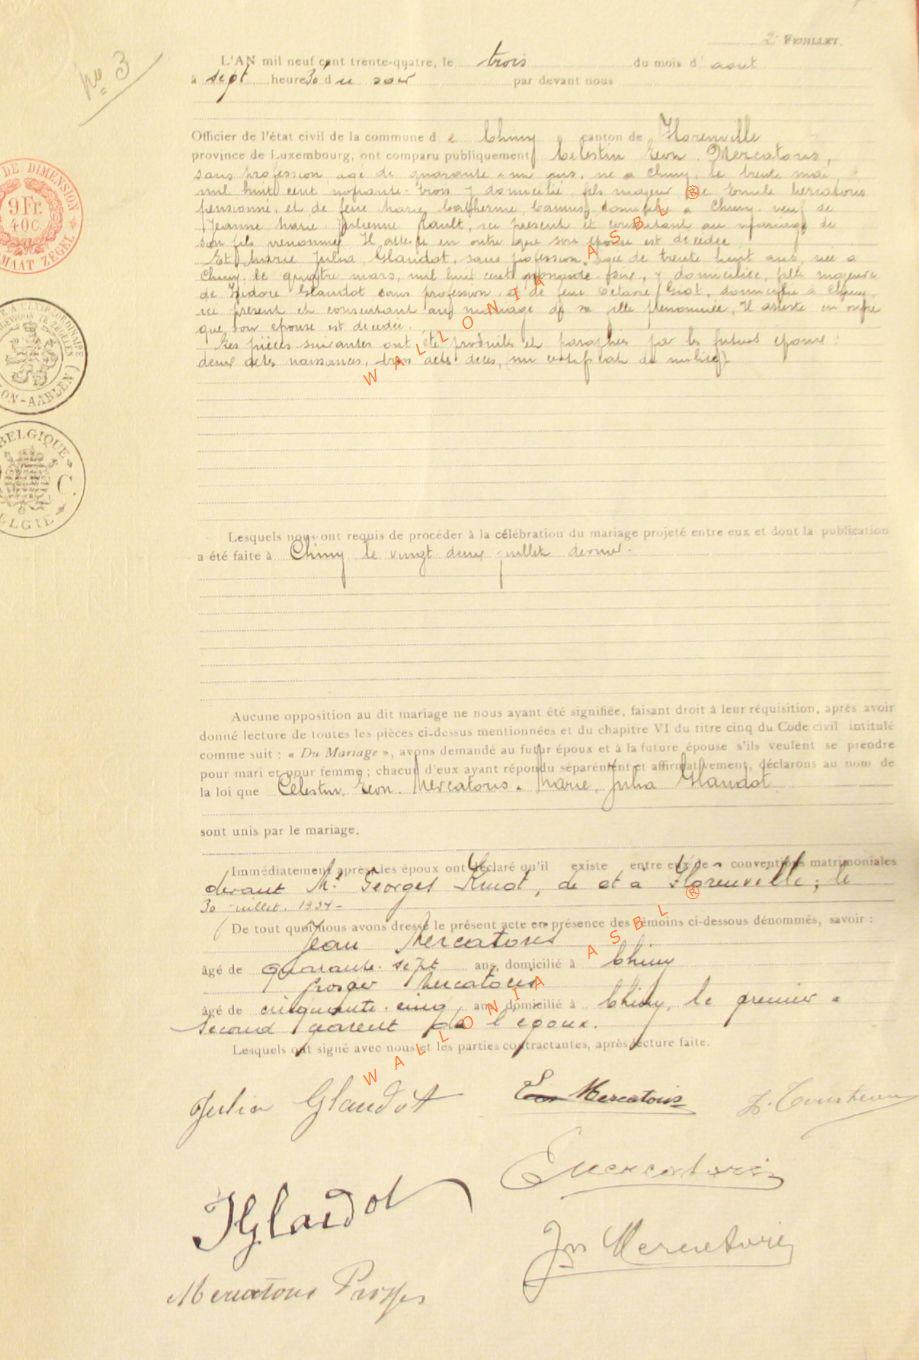 2e FEUILLET.
No 3
L'AN mil neuf cent trente-quatre, le trois du mois d' aout
à sept heures 30 du soir par devant nous
Officier de l'état civil de la commune d e Chiny canton de Florenville
province de Luxembourg, ont comparu publiquement Célestin Léon Mercatoris,
sans profession age de quarante et un ans, né a Chiny, le trente mai,
mil huit cent nonante-trois y domicilié fils majeur de Mercatoris
pensionné, et de feue Marie Catherine Camus, domicilié a Chiny, veuf de
Jeanne Marie Julienne Rault, ici présent et consentant au mariage de
son fils prénommé. Il atteste en outre que son épouse est décédée.
Et Marie Julia Glaudot, sans profession, agée de trente huit ans, née a
Chiny, le quatre mars, mil huit cent nonante y domiciliée, fille majeure
de Isidore Glaudot sans profession et de feue Octavie Giot, domicilié a Chiny,
ici présent et consentant au mariage de sa fille prénommée, Il atteste en outre
que son épouse est décédée.
Les pièces suivantes ont été produites et paraphées par les futurs époux :
deux actes naissances, trois actes décès, un certificat de milice
Lesquels nous ont requis de procéder à la célébration du mariage projeté entre eux et dont la publication
a été faite à Chiny le vingt deux juillet dernier.
Aucune opposition au dit mariage ne nous ayant été signifiée, faisant droit à leur réquisition, après avoir
donné lecture de toutes les pièces ci-dessus mentionnées et du chapitre VI du titre cinq du Code civil intitulé
comme suit : « Du Mariage », avons demandé au futur époux et à la future épouse s'ils veulent se prendre
pour mari et pour femme ; chacun d'eux ayant répondu séparément et affirmativement, déclarons au nom de
la loi que Célestin, Léon Mercatoris. Marie, Julia Glaudot
sont unis par le mariage.
Immédiatement après les époux ont déclaré qu'il existe entre eux de conventions matrimoniales
devant Mr Georges, de et à Florenville, le
30 juillet 1934
De tout quoi nous avons dressé le présent acte en présence des témoins ci-dessous dénommés, savoir :
Jean Mercatoris
âgé de quarante-sept ans, domicilié à Chiny
Prosper Mercatoris
âgé de cinquante-cinq ans, domicilié à Chiny, le premier
second parent de l'époux.
Lesquels ont signé avec nous et les parties contractantes, après lecture faite.
Julia Glaudot Mercatoris
E Mercatoris
J Glaudot
Jn Mercatoris
Mercatoris Prosper
DE DIMENSION
9 Fr.
40 C.
MAAT ZEGEL
BELGIQUE
C.
WALLONIA ASBL ®
WALLONIA ASBL ®